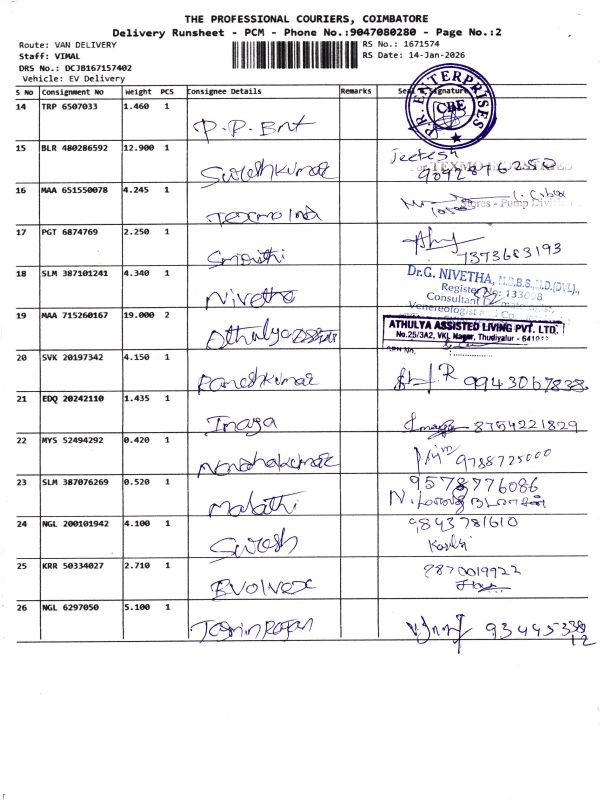 THE PROFESSIONAL COURIERS, COIMBATORE
Delivery Runsheet - PCM - Phone No.:9047080280 - Page No.:2
Route: VAN DELIVERY
RS No.: 1671574
Staff: VIMAL
RS Date: 14-Jan-2026
DRS No.: DCJB167157402
Vehicle: EV Delivery
S No Consignment No Weight PCS Consignee Details Remarks Seal & Signature
P.R. ENTERPRISES
CBE
14 TRP 6507033 1.460 1
P.P. Bnt
15 BLR 480286592 12.900 1 Jeetesh
Sureshkumar 9092876250
16 MAA 651550078 4.245 1
Texmo Ind Stores - Pump Division
17 PGT 6874769 2.250 1
Smrithi 7373683193
18 SLM 387101241 4.340 1 Dr.G. NIVETHA, M.B.B.S., M.D.(DVL),
Register No: 133098
Nivetha Consultant Dermatologist,
Venereologist and
19 MAA 715260167 19.000 2 ATHULYA ASSISTED LIVING PVT. LTD.
No.25/3A2, VKL Nagar, Thudiyalur - 641
Athulya
20 SVK 20197342 4.150 1
Rameshkumar 9943067838
21 EDQ 20242110 1.435 1
Inaya 8754221829
22 MYS 52494292 0.420 1
Nandhakumar 9788725000
23 SLM 387076269 0.520 1 9578776086
Malathi
24 NGL 200101942 4.100 1 9843781610
Suresh
25 KRR 50334027 2.710 1 9870019922
Evolvex
26 NGL 6297050 5.100 1
Jasmin Rajan 93445338
12